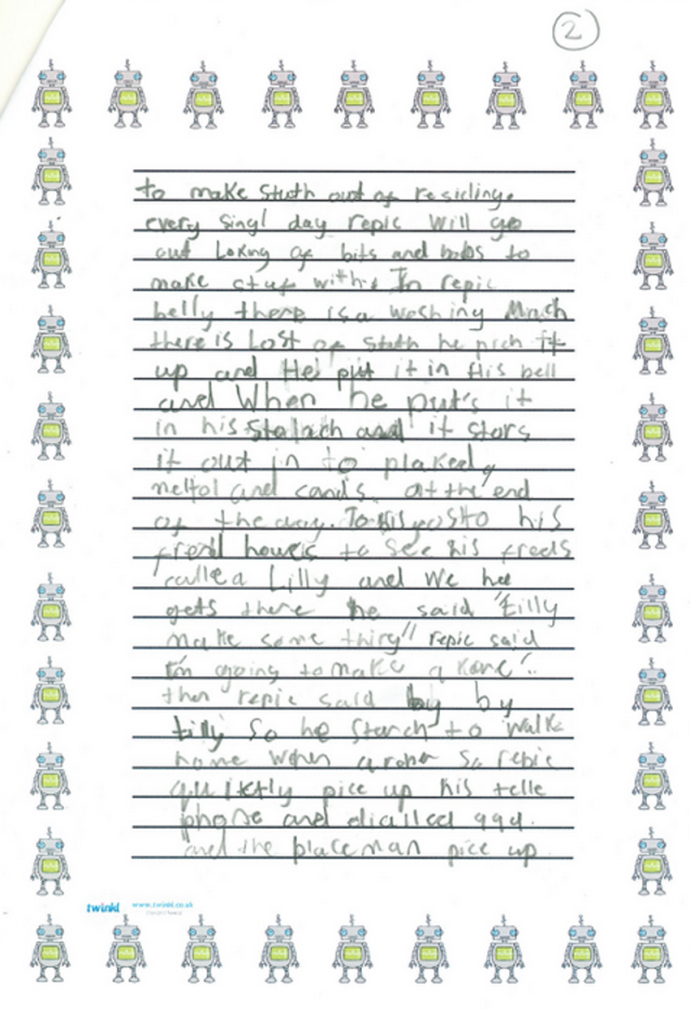 2
to make stuth out of resicling.
every singl day repic will go
out Loking of bits and bobs to
make stuf with. In repic
belly there is a woshing Mach
there is Lost of stuth he pich it
up and He put it in His bell
and When he put's it
in his and it stors
it out in to
and cands at the end
of the day. to his
to see his freds
called Lilly and We he
gets there he said "Lilly
make some thing" repic said
I'm going to make a
then repic said by by
Lilly So he starch to walk
home When a So repic
pice up his telle
phone and dialled 999.
and the placeman pice up
twinkl www.twinkl.co.uk